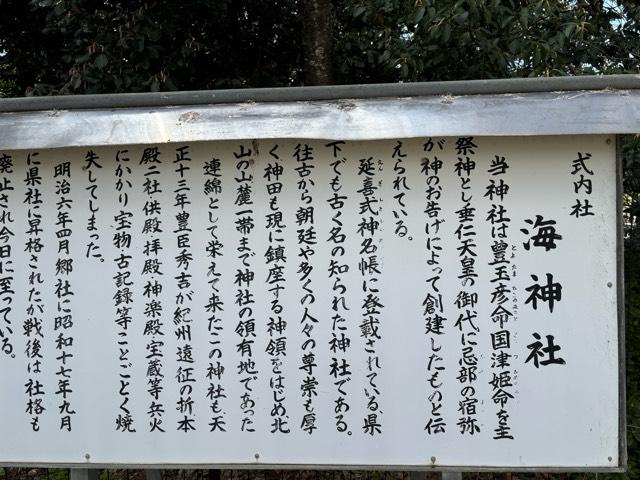 式内社
海神社
当神社は豊玉彦命国津姫命を主
祭神とし垂仁天皇の御代に忌部の宿弥
が神のお告げによって創建したものと伝
えられている。
延喜式神名帳に登載されている、県
下でも古く名の知られた神社である。
往古から朝廷や多くの人々の尊崇も厚
く神田も現に鎮座する神領をはじめ北
山の山麓一帯まで神社の領有地であった
連綿として栄えて来たこの神社も、天
正十三年豊臣秀吉が紀州遠征の折本
殿二社・供殿・拝殿・神楽殿・宝蔵等兵火
にかかり宝物・古記録等ことごとく焼
失してしまった。
明治六年四月郷社に昭和十七年九月
に県社に昇格されたが戦後は社格も
廃止され今日に至っている。